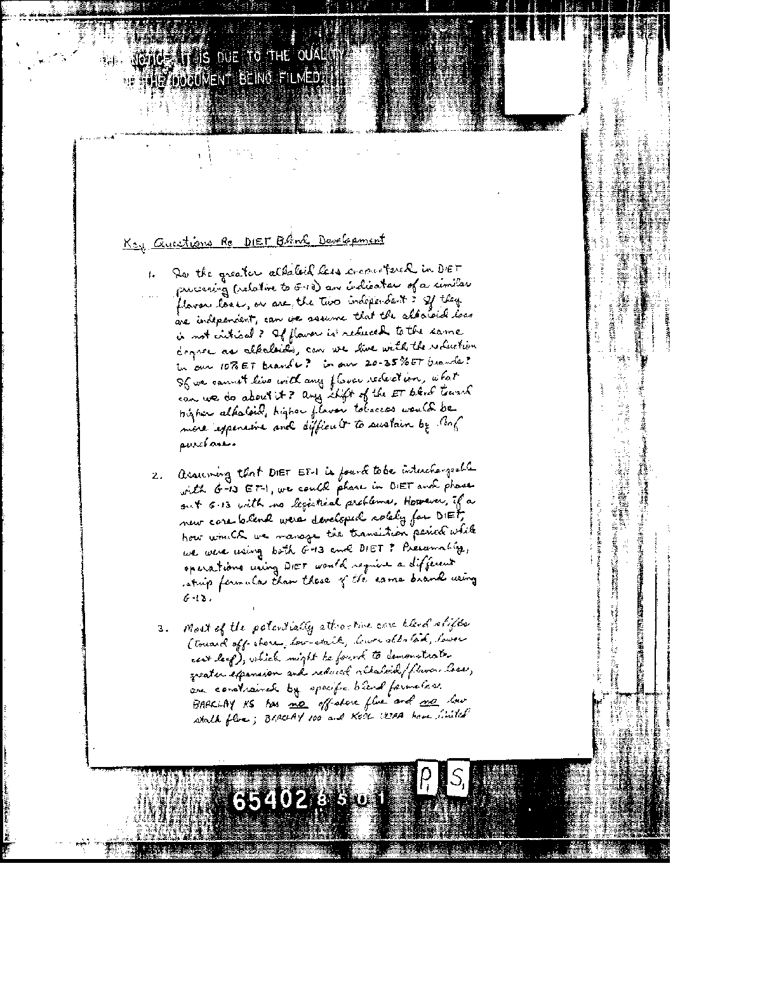 NOTICE IT IS DUE TO THE QUALITY
OF THE DOCUMENT BEING FILMED.
Key Questions Re DIET Blend Development
1. Is the greater alkaloid loss encountered in DIET
processing (relative to G-13) an indicator of a similar
flavor loss, or are the two independent? If they
are independent, can we assume that the alkaloid loss
is not critical? If flavor is reduced to the same
degree as alkaloids, can we live with the reduction
in our 10% ET brands? in our 20-35% ET brands?
If we cannot live with any flavor reduction, what
can we do about it? Any shift of the ET blend toward
higher alkaloid, higher flavor tobaccos would be
more expensive and difficult to sustain by leaf
purchase.
2. Assuming that DIET ET-1 is found to be interchangeable
with G-13 ET-1, we could phase in DIET and phase
out G-13 with no logistical problems. However, if a
new core blend were developed solely for DIET,
how would we manage the transition period while
we were using both G-13 and DIET? Presumably,
operations using DIET would require a different
strip formula than those of the same brand using
G-13.
3. Most of the potentially attractive core blend shifts
(toward off-shore, low-stalk, lower alkaloid, lower
cost leaf), which might be found to demonstrate
greater expansion and reduced alkaloid/flavor loss,
are constrained by specific blend formulas.
BARCLAY KS has no off-shore flue and no low
stalk flue; BARCLAY 100 and KOOL ULTRA have limited
P1 S1
654028501